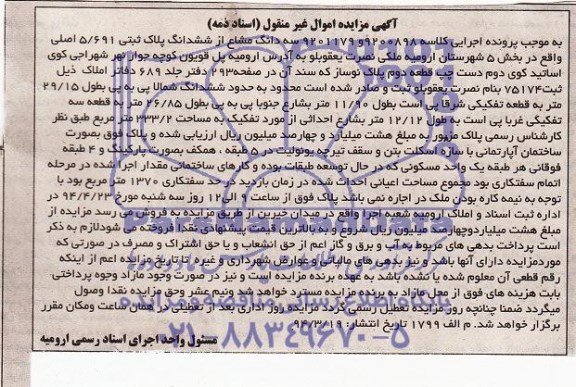 آگهی مزایده اموال غیر منقول (اسناد ذمه)
به موجب پرونده اجرایی کلاسه ۹۲۰۰۸۹۸ و ۹۲۰۱۱۷۹ سه دانگ مشاع از ششدانگ پلاک ثبتی ۵/۶۹۱ اصلی
واقع در بخش ۵ شهرستان ارومیه ملکی نصرت یعقوبلو به آدرس ارومیه پل قویون کوچه جوار نهر شهراجی کوی
اساتید کوی دوم دست چپ قطعه دوم پلاک نوساز که سند آن در صفحه ۲۹۳ دفتر جلد ۶۸۹ دفتر املاک ذیل
ثبت ۷۵۱۷۴ بنام نصرت یعقوبلو ثبت و صادر شده است محدود به حدود ششدانگ شمالا پی به پی بطول ۲۹/۱۵
متر به قطعه تفکیکی شرقا پی است بطول ۱۱/۸۰ متر بشارع جنوبا پی به پی بطول ۲۶/۸۵ متر به قطعه سه
تفکیکی غربا پی است به طول ۱۲/۱۲ متر بشارع احداثی از مورد تفکیک به مساحت ۲۳۳/۲ متر مربع طبق نظر
کارشناس رسمی پلاک مزبور به مبلغ هشت میلیارد و چهارصد میلیون ریال ارزیابی شده و پلاک فوق بصورت
ساختمان آپارتمانی با سازه اسکلت بتن و سقف تیرچه یونولیت در ۵ طبقه ، همکف بصورت پارکینگ و ۴ طبقه
فوقانی هر طبقه یک واحد مسکونی که در حال توسعه طبقات بوده و کارهای ساختمانی مقدار اجرا شده در مرحله
اتمام سفتکاری بود مجموع مساحت اعیانی احداث شده در زمان بازدید در حد سفتکاری ۱۳۷۰ متر مربع بود با
توجه به نیمه کاره بودن ملک در اجاره نمی باشد پلاک فوق از ساعت ۹ الی ۱۲ روز سه شنبه مورخ ۹۴/۴/۲۳ در
اداره ثبت اسناد و املاک ارومیه شعبه اجرا واقع در میدان خیرین از طریق مزایده به فروش می رسد مزایده از
مبلغ هشت میلیارد و چهارصد میلیون ریال شروع و به بالاترین قیمت پیشنهادی نقدا فروخته می شود لازم به ذکر
است پرداخت بدهی های مربوط به آب و برق و گاز اعم از حق انشعاب و یا حق اشتراک و مصرف در صورتی که
مورد مزایده دارای آنها باشد و نیز بدهی های مالیاتی و عوارض شهرداری و غیره تا تاریخ مزایده اعم از اینکه
رقم قطعی آن معلوم شده یا نشده باشد به عهده برنده مزایده است و نیز در صورت وجود مازاد وجوه پرداختی
بابت هزینه های فوق از محل مازاد به برنده مزایده مسترد خواهد شد ونیم عشر وحق مزایده نقدا وصول
میگردد ضمنا چنانچه روز مزایده تعطیل رسمی گردد مزایده روز اداری بعد از تعطیلی در همان ساعت ومکان مقرر
برگزار خواهد شد. م الف ۱۷۹۹ تاریخ انتشار: ۹۴/۳/۱۹
مسئول واحد اجرای اسناد رسمی ارومیه
پایگاه اطلاع رسانی مناقصه و مزایده
۰۲۱-۸۸۳۴۹۶۷۰-۵